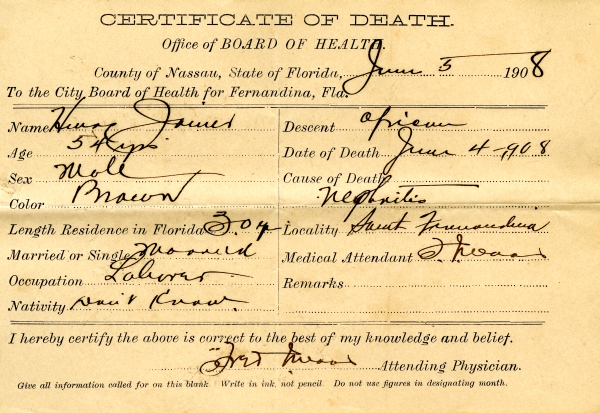 CERTIFICATE OF DEATH.
Office of BOARD OF HEALTH.
County of Nassau, State of Florida, June 5 1908
To the City Board of Health for Fernandina, Fla.
Name Joiner
Age 54 yrs
Sex Male
Color Brown
Length Residence in Florida
Married or Single Married
Occupation Laborer
Nativity Don't Know
Descent African
Date of Death June 4-908
Cause of Death
Nephritis
Locality Fernandina
Medical Attendant
Remarks
I hereby certify the above is correct to the best of my knowledge and belief.
Attending Physician.
Give all information called for on this blank Write in ink, not pencil Do not use figures in designating month.